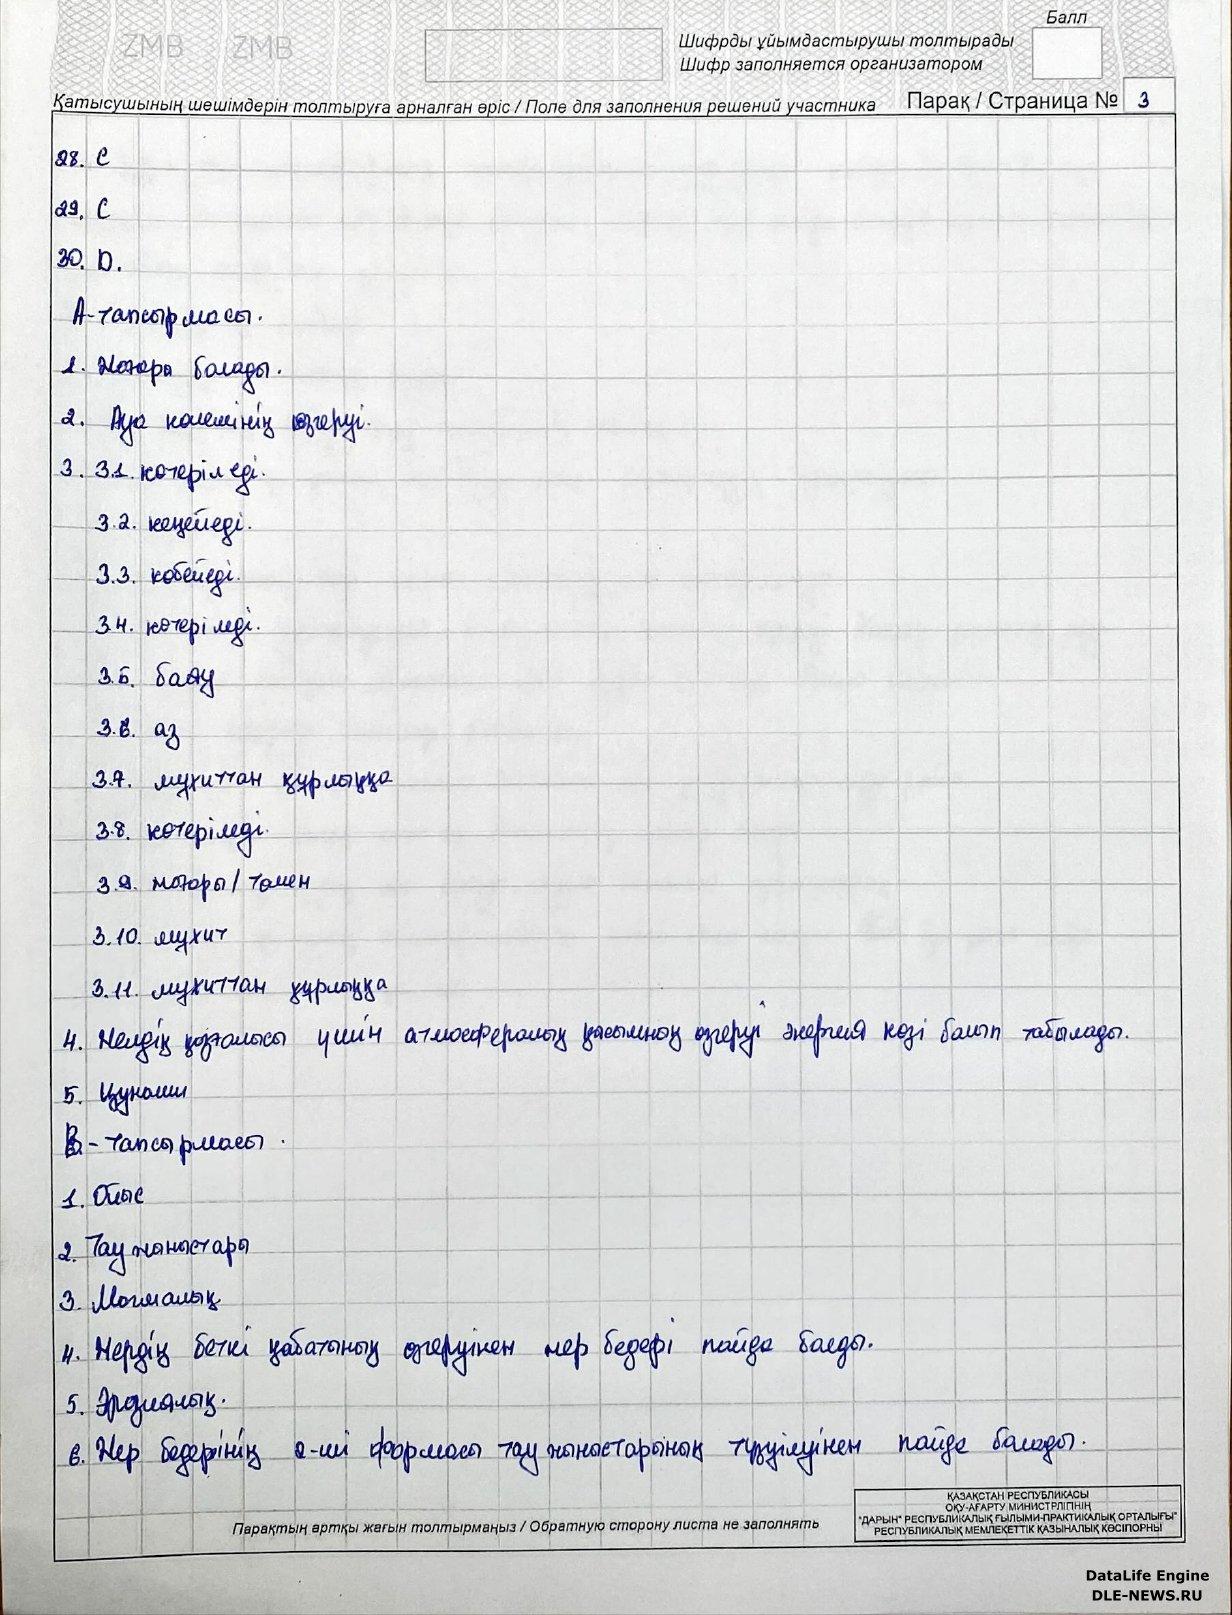 ZMB ZMB
Балл
Шифрды ұйымдастырушы толтырады
Шифр заполняется организатором
Қатысушының шешімдерін толтыруға арналған өріс / Поле для заполнения решений участника Парақ / Страница № 3
28. C
29. C
30. D.
А-тапсырмасы.
1. Жоғары болады.
2. Ауа көлемінің өзгеруі.
3. 3.1. көтеріледі.
3.2. кеңейеді.
3.3. көбейеді.
3.4. көтеріледі.
3.5. баяу
3.6. аз
3.7. мұхиттан құрлыққа
3.8. көтеріледі.
3.9. жоғары / төмен
3.10. мұхит
3.11. мұхиттан құрлыққа
4. Желдің қозғалысы үшін атмосфералық қысымның өзгеруі энергия көзі болып табылады.
5. Цунами
B - тапсырмасы.
1. Ойыс
2. Тау жыныстары
3. Магмалық
4. Жердің беткі қабатының өзгеруінен жер бедері пайда болды.
5. Эрозиялық.
6. Жер бедерінің 2-ші формасы тау жыныстарының түзуілуінен пайда болады.
ҚАЗАҚСТАН РЕСПУБЛИКАСЫ
ОҚУ-АҒАРТУ МИНИСТРЛІГІНІҢ
"ДАРЫН" РЕСПУБЛИКАЛЫҚ ҒЫЛЫМИ-ПРАКТИКАЛЫҚ ОРТАЛЫҒЫ"
РЕСПУБЛИКАЛЫҚ МЕМЛЕКЕТТІК ҚАЗЫНАЛЫҚ КӘСІПОРНЫ
Парақтың артқы жағын толтырмаңыз / Обратную сторону листа не заполнять
DataLife Engine
DLE-NEWS.RU